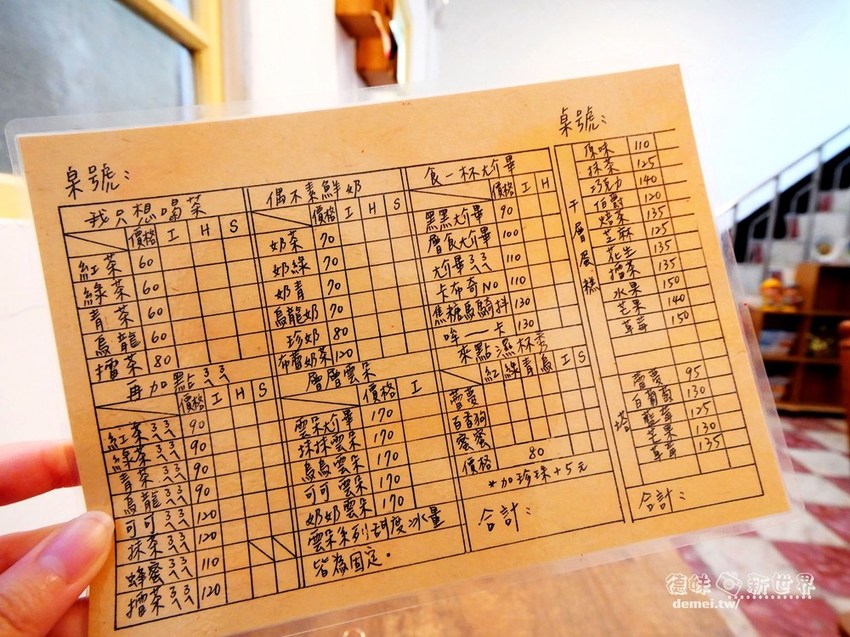 桌號：
我只想喝茶
價格 I H S
紅茶 60
綠茶 60
青茶 60
烏龍 60
擂茶 80
再加點ㄋㄋ
價格 I H S
紅茶ㄋㄋ 90
綠茶ㄋㄋ 90
青茶ㄋㄋ 90
烏龍ㄋㄋ 90
可可ㄋㄋ 120
抹茶ㄋㄋ 120
蜂蜜ㄋㄋ 110
擂茶ㄋㄋ 120
偶不素鮮奶
價格 I H S
奶茶 70
奶綠 70
奶青 70
烏龍奶 70
珍奶 80
布蕾奶茶 120
層層雲朵
價格 I
雲朵大介畢 170
抹抹雲朵 170
烏烏雲朵 170
可可雲朵 170
奶奶雲朵 170
雲朵系列甜度冰量
皆為固定。
食一杯大介畢
價格 I H
黑黑大介畢 90
層食大介畢 100
大介畢ㄋㄋ 110
卡布奇NO 110
焦糖馬騎抖 130
哞一一卡 130
來點濕杯秀
紅 綠 青 烏 I S
蔓蔓
百香狗
蜜蜜
價格 80
*加珍珠+5元
合計：
桌號：
千層蛋糕
原味 110
抹茶 125
巧克力 140
伯爵 120
焙茶 135
芝麻 125
花生 135
擂茶 135
水果 150
芒果 140
草莓 150
塔
蔓蔓 95
白葡萄 130
藍莓 125
芒果 130
草莓 135
合計：
德味新世界
demei.tw/